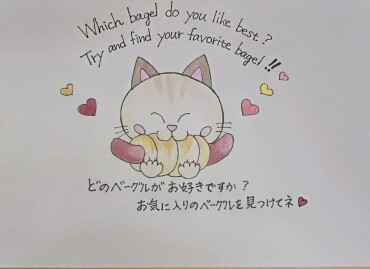 Which bagel do you like best?
Try and find your favorite bagel!!
どのベーグルがお好きですか?
お気に入りのベーグルを見つけてネ